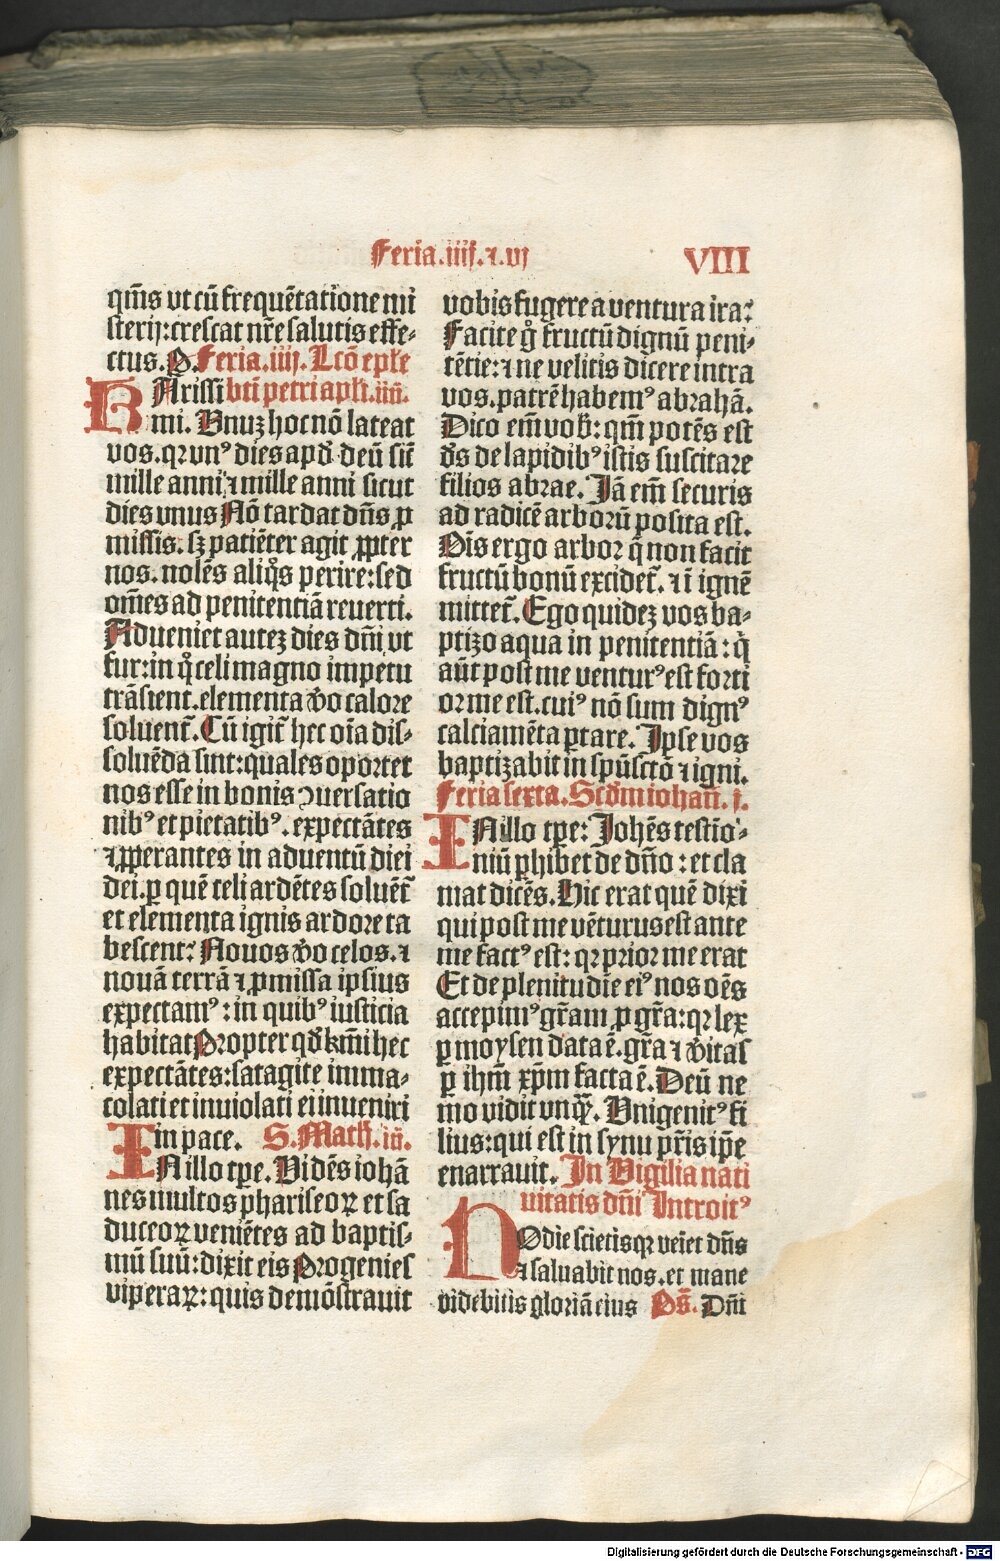 Feria.iiij.⁊.vj
VIII
qm̄s vt cū frequētatione mi
sterij:crescat nr̄e salutis effe-
ctus. P. Feria.iiij. Lcō eple
Arissi bti petri apli.iij.
mi. Vnuꝫ hoc nō lateat
vos.qꝛ vnꝰ dies apđ deū sic̄
mille anni:⁊ mille anni sicut
dies vnus Nō tardat dn̄s ꝓ
missis.sꝫ patiēter agit ꝓpter
nos.nolēs aliqͦs perire:sed
om̄es ad penitentiā reuerti.
Adueniet auteꝫ dies dn̄i vt
fur:in qͦ celi magno impetu
trāsient.elementa ꝟo calore
soluent̄. Cū igit̄ hec oīa dis-
soluēda sint:quales oportet
nos esse in bonis ꝯuersatio
nibꝰ et pietatibꝰ.expectātes
⁊ ꝓperantes in aduentū diei
dei.ꝑ quē celi ardētes soluēt̄
et elementa ignis ardore ta
bescent? Nouos ꝟo celos.⁊
nouā terrā ⁊ ꝓmissa ipsius
expectamꝰ:in quibꝰ iusticia
habitat Propter qđ kmi hec
expectātes:satagite imma-
colati et inuiolati ei inueniri
in pace. S.Math.iij.
INillo tꝑe. Vidēs iohā
nes multos phariseoꝝ et sa
duceoꝝ veniētes ad baptis-
mū suū:dixit eis Progenies
viperaꝝ:quis demōstrauit
vobis fugere a ventura ira?
Facite gͦ fructū dignū peni-
tētie:⁊ ne velitis dicere intra
vos.patrē habemꝰ abrahā.
Dico em̄ vob̄:qm̄ potēs est
đs de lapidibꝰ istis suscitare
filios abrae. Jā em̄ securis
ad radicē arborū posita est.
Oīs ergo arbor q̄ non facit
fructū bonū excidet̄.⁊ ī ignē
mittet̄. Ego quideꝫ vos ba-
ptizo aqua in penitentiā:q̇
aūt post me venturꝰ est forti
or me est.cuiꝰ nō sum dignꝰ
calciamēta ꝑtare. Jpse vos
baptizabit in spū sctō ⁊ igni.
Feria sexta. Scđm iohan̄. j.
INillo tꝑe: Johēs testio-
niū ꝑhibet de dn̄o:et cla
mat dicēs. Hic erat quē dixi
qui post me vēturus est ante
me factꝰ est:qꝛ prior me erat
Et de plenitudīe eiꝰ nos oēs
accepimꝰ gr̄am ꝓ gr̄a:qꝛ lex
ꝑ moysen data ē.gr̄a ⁊ ꝟitas
ꝑ ihm̄ xp̄m facta ē. Deū ne
mo vidit vnqͣ. Vnigenitꝰ fi
lius:qui est in synu pr̄is ip̄e
enarrauit. In Vigilia nati
uitatis dn̄i Introitꝰ
HOdie scietis qꝛ veīet dn̄s
⁊ saluabit nos.et mane
videbitis gloriā eius Ps̄. Dn̄i
Digitalisierung gefördert durch die Deutsche Forschungsgemeinschaft - DFG